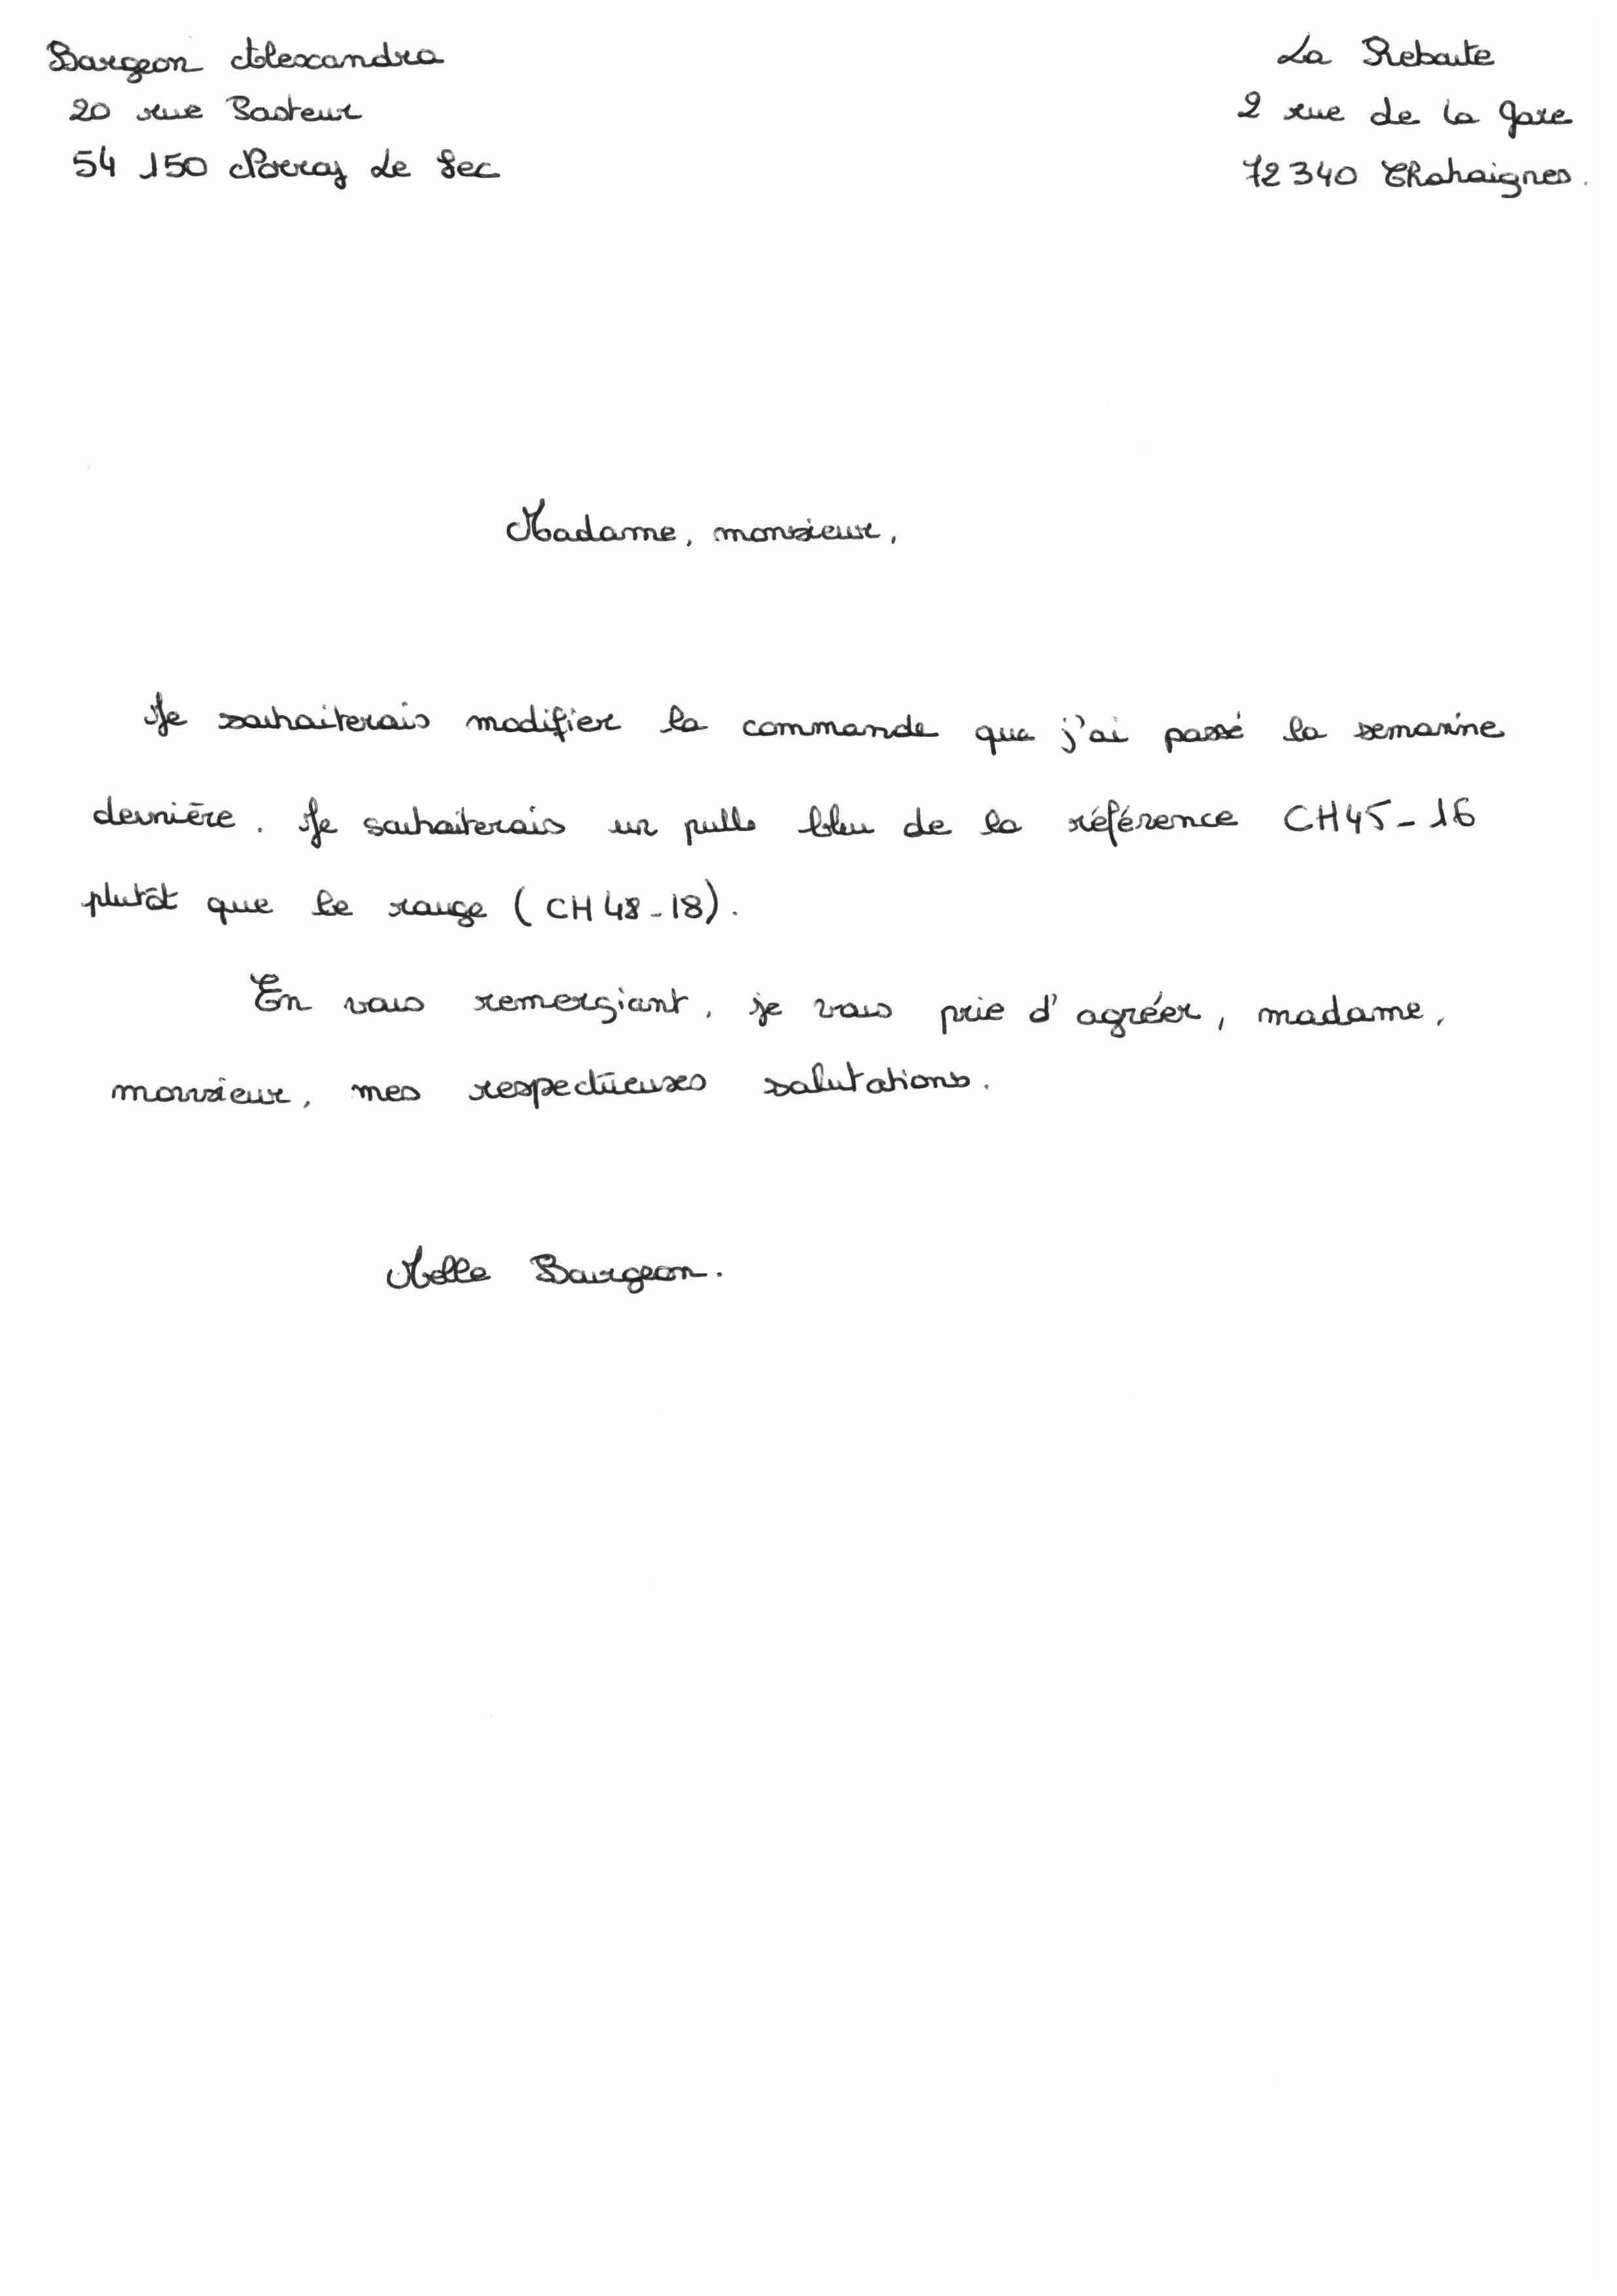 Bourgeon Alexandra
20 rue Pasteur
54 150 Norroy Le Sec
La Reboute
2 rue de la gare
72 340 Chahaignes.
Madame, monsieur,
Je souhaiterais modifier la commande que j'ai passé la semaine
dernière. Je souhaiterais un pulls bleu de la référence CH45-16
plutôt que le rouge (CH48-18).
En vous remerciant, je vous prie d'agréer, madame,
monsieur, mes respectueuses salutations.
Melle Bourgeon.